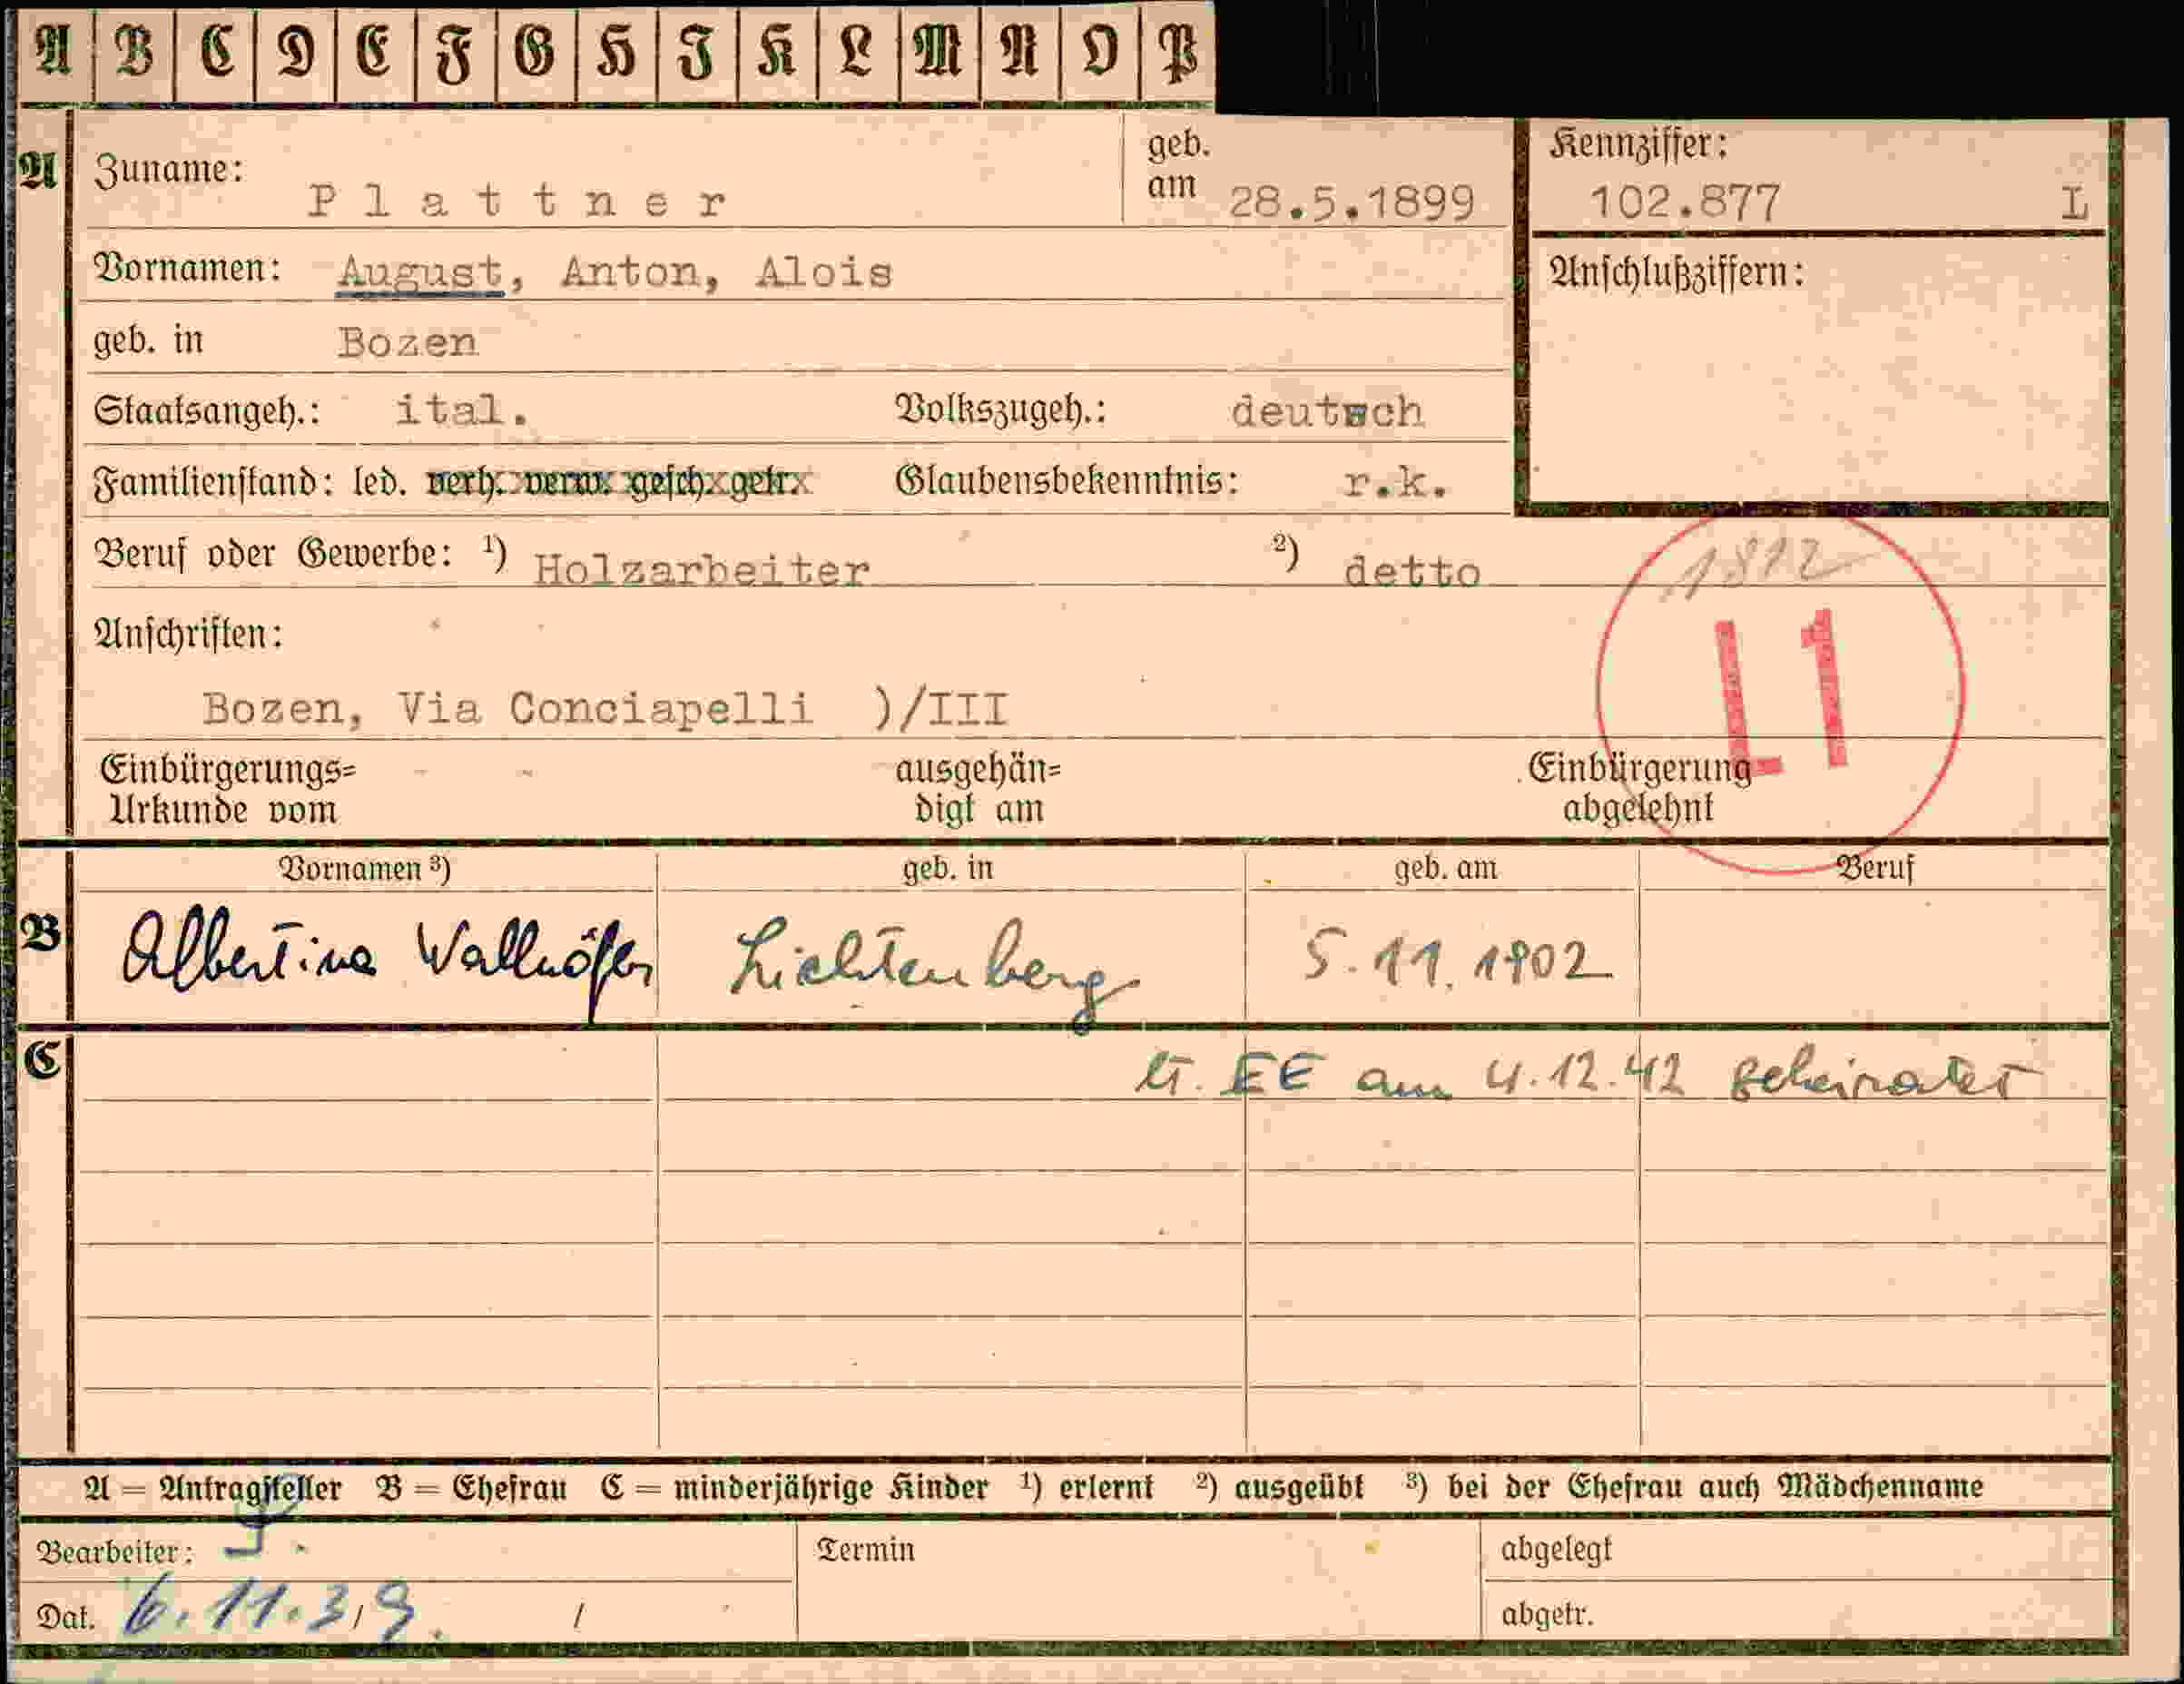 A B C D E F G H J K L M N O P
A Zuname: Plattner geb. am 28.5.1899 Kennziffer: 102.877 L
Vornamen: August, Anton, Alois Anschlußziffern:
geb. in Bozen
Staatsangeh.: ital. Volkszugeh.: deutsch
Familienstand: led. verh. verw. gesch. getr. Glaubensbekenntnis: r.k.
Beruf oder Gewerbe: ¹) Holzarbeiter ²) detto 1812
Anschriften:
L1
Bozen, Via Conciapelli )/III
Einbürgerungs= ausgehän= Einbürgerung
Urkunde vom digt am abgelehnt
Vornamen ³) geb. in geb. am Beruf
B Albertina Wallnöfer Lichtenberg 5.11.1902
C lt. EE am 4.12.42 geheiratet
A = Antragsteller B = Ehefrau C = minderjährige Kinder ¹) erlernt ²) ausgeübt ³) bei der Ehefrau auch Mädchenname
Bearbeiter: Termin abgelegt
Dat. 6.11.39. / abgetr.